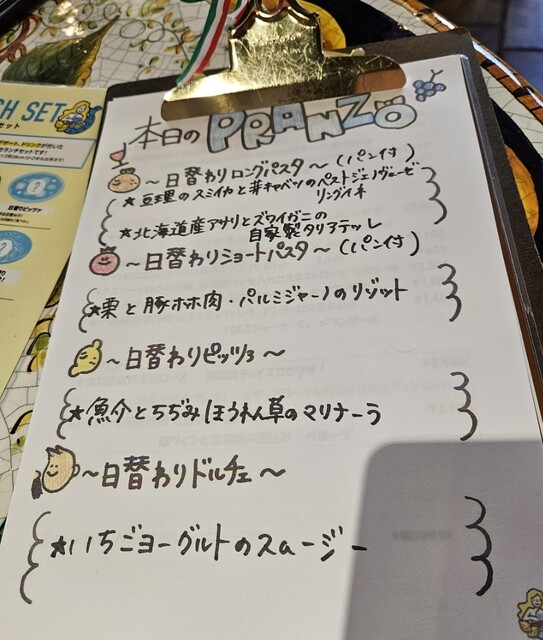 CH SET
セット
本日の PRANZO
~日替わりロングパスタ~(パン付)
★豆理のスミイカと芽キャベツのペストジェノヴェーゼ
リングイネ
★北海道産アサリとズワイガニの
自家製タリアテッレ
~日替わりショートパスタ~(パン付)
★栗と豚ホホ肉・パルミジャーノのリゾット
~日替わりピッツァ~
★魚介とちぢみほうれん草のマリナーラ
~日替わりドルチェ~
★いちごヨーグルトのスムージー